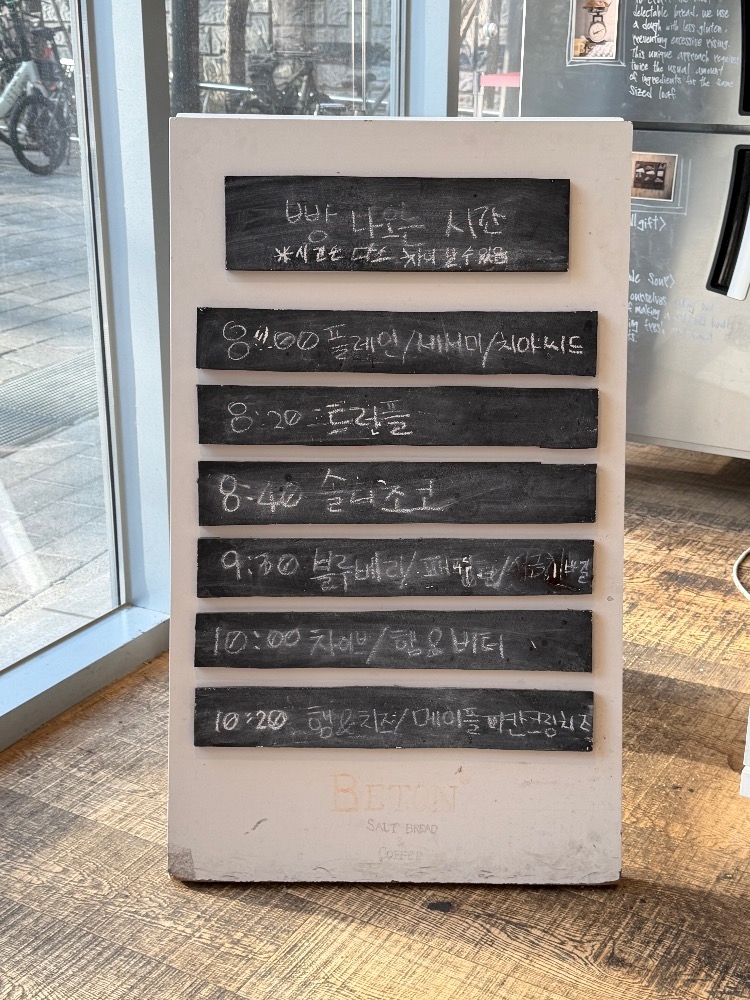 to create the most
delectable bread, we use
a dough with less gluten,
preventing excessive rising.
This unique approach requires
twice the usual amount
of ingredients for the same
sized loaf.
빵 나오는 시간
*시간은 다소 차이 날 수 있음
8:00 플레인/세서미/치아씨드
8:20 트러플
8:40 솔티초코
9:30 블루베리/
10:00 차이브/햄&버터
10:20 햄&치즈/메이플피칸크림치즈
BETON
SALT BREAD
&
COFFEE